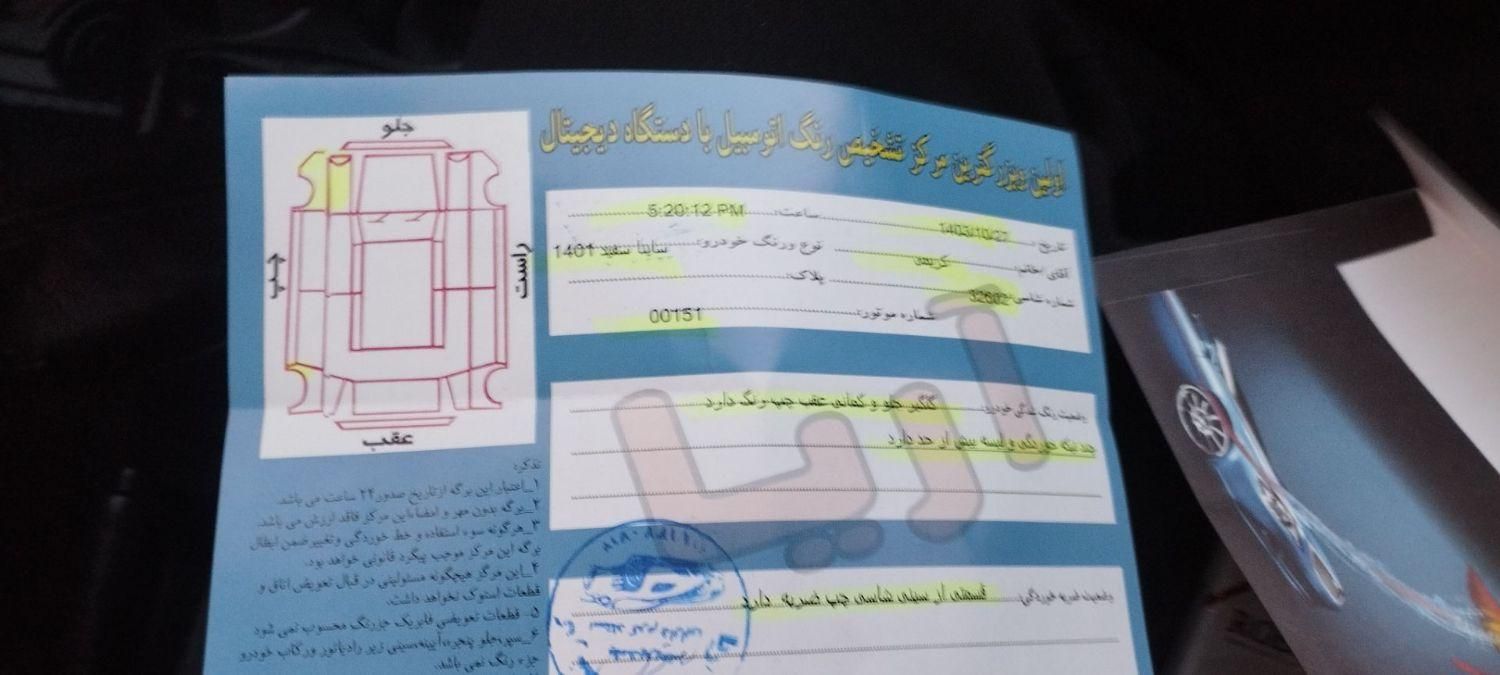 اولین وبزرگترین مرکز تشخیص رنگ اتومبیل با دستگاه دیجیتال
جلو
چپ
راست
عقب
تاریخ: 1403/10/27 ساعت: 5:20:12 PM
آقای /خانم: کریمی نوع ورنگ خودرو: ساینا سفید 1401
شماره شاسی: 32602 پلاک:
شماره موتور: 00151
وضعیت رنگ شدگی خودرو: گلگیر جلو و کمانی عقب چپ رنگ دارد
چند تیکه خوردگی و لیسه بیش از حد دارد
آریا
وضعیت ضربه خوردگی: قسمتی از سینی شاسی چپ ضربه دارد
تذکر:
1_اعتبار این برگه از تاریخ صدور 24 ساعت می باشد.
2_برگه بدون مهر و امضاء این مرکز فاقد ارزش می باشد.
3_هرگونه سوء استفاده و خط خوردگی وتغییر ضمن ابطال
برگه این مرکز موجب پیگرد قانونی خواهد بود.
4_این مرکز هیچگونه مسئولیتی در قبال تعویض اتاق و
قطعات استوک نخواهد داشت.
5_ قطعات تعویضی فابریک جزرنگ محسوب نمی شود
6_ سپر،جلو پنجره،آیینه،سینی زیر رادیاتور ورکاب خودرو
جزء رنگ نمی باشد.